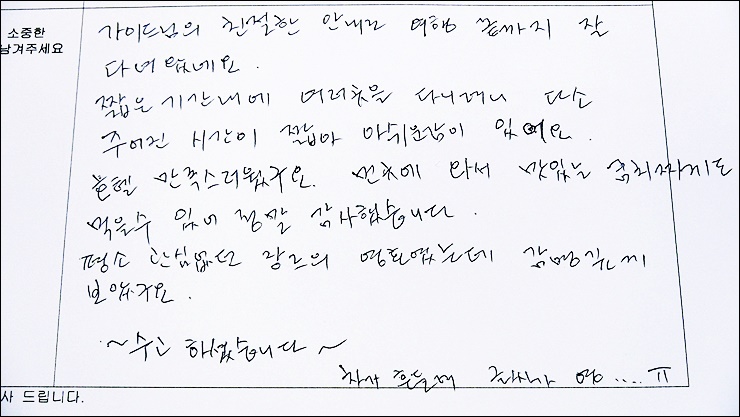 소중한
남겨주세요
가이드님의 친절한 안내로 여행 끝까지 잘
다녀 왔네요.
짧은 기간내에 여러곳을 다니려니 다소
주어진 시간이 짧아 아쉬운감이 있어요.
호텔 만족스러웠구요. 먼곳에 와서 맛있는 김치찌개도
먹을수 있어 정말 감사했습니다.
평소 관심없던 장르의 영화였는데 감명깊게
보았구요.
~수고 하셨습니다~
차가 흔들려 글씨가 영.... ㅠ
사 드립니다.